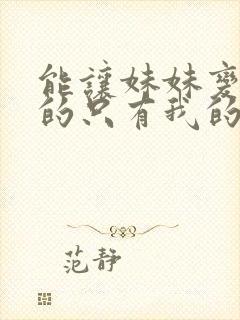 能讓妹妹變
的只有我的
范静